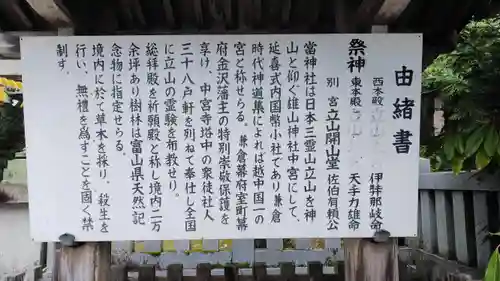 由緒書
祭神
西本殿 立山 伊弉那岐命
東本殿 天手力雄命
別宮 立山開山堂 佐伯有頼公
當神社は日本三霊山立山を神
山と仰ぐ雄山神社中宮にして、
延喜式内国幣小社であり兼倉
時代神道集によれば越中国一の
宮と称せらる。兼倉幕府室町幕
府金沢藩主の特別崇敬保護を
享け、中宮寺塔中の衆徒社人
三十八戸軒を列ねて奉仕し全国
に立山の霊験を布教せり。
総拝殿を祈願殿と称し境内二万
余坪あり樹林は富山県天然記
念物に指定せらる。
境内に於て草木を採り、殺生を
行い、無禮を為すことを固く禁
制す。